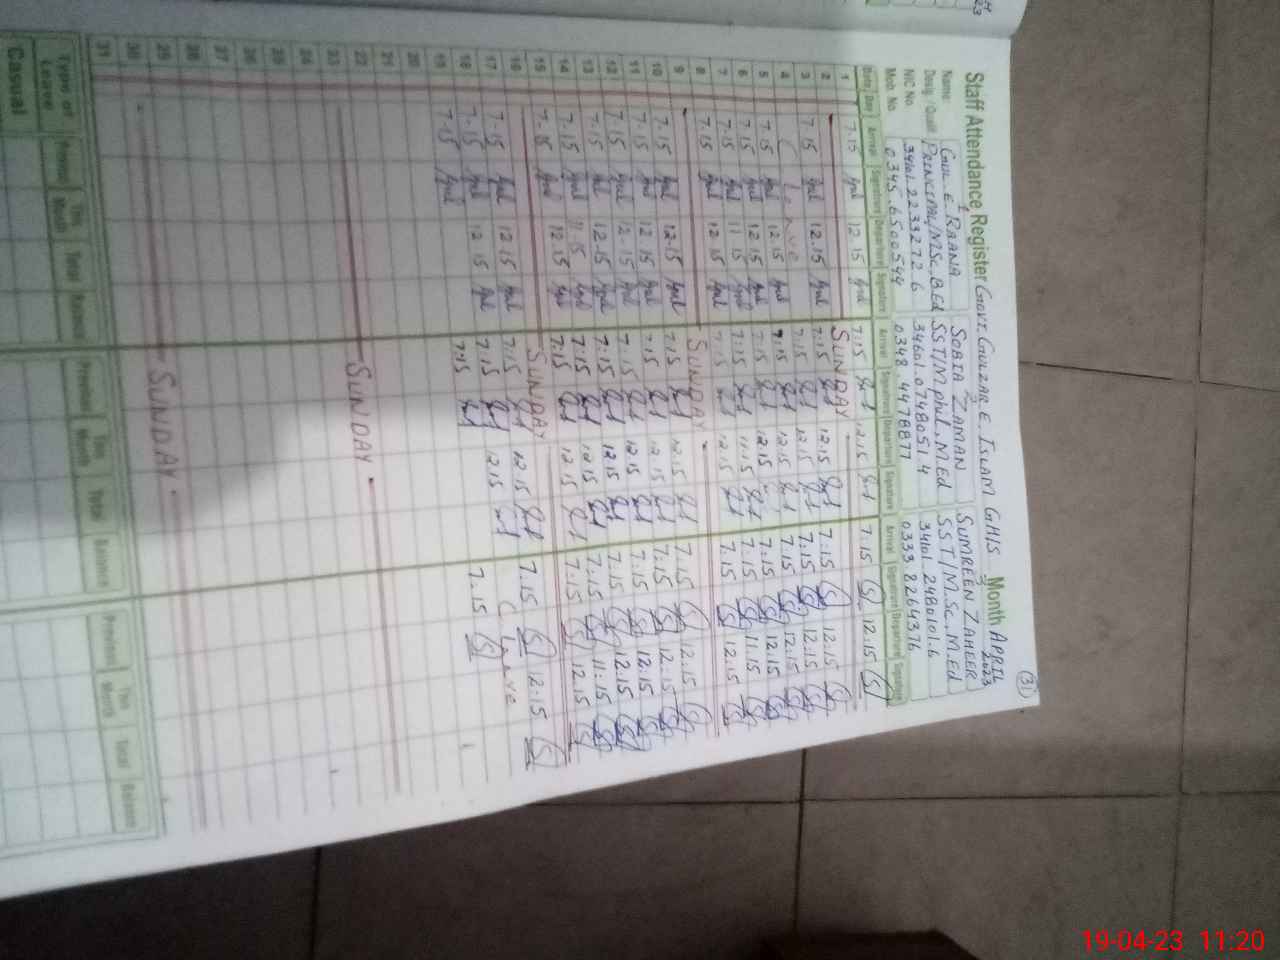 (31)
Staff Attendance Register GOVT. GULZAR E ISLAM GHIS Month APRIL 2023
Name: GUL E RAANA SOBIA ZAMAN SUMREEN ZAHEER
Desig. / Qualif. PRINCIPAL/MSc, B.Ed SST/M phil, M.Ed SST/M.Sc, M.Ed
NIC No. 34601.0748051.4 34101.2480101.6
Mob. No. 0345.6500544 0348 4478877 0333 8264376
Date Day Arrival Signature Departure Signature Arrival Signature Departure Signature Arrival Signature Departure Signature
1 7.15 12.15 7.15 12.15 7.15 12.15
2 SUNDAY
3 7.15 12.15 7.15 12.15 7.15 12.15
4 Leave 7.15 12.15 7.15 12.15
5 7.15 12.15 7.15 12.15 7.15 12.15
6 7.15 12.15 7.15 12.15 7.15 12.15
7 7.15 11.15 7.15 11.15 7.15 11.15
8 7.15 12.15 7.15 12.15 7.15 12.15
9 SUNDAY
10 7.15 12.15 7.15 12.15 7.15 12.15
11 7.15 12.15 7.15 12.15 7.15 12.15
12 7.15 12.15 7.15 12.15 7.15 12.15
13 7.15 12.15 7.15 12.15 7.15 12.15
14 7.15 11.15 7.15 12.15 7.15 11.15
15 7.15 12.15 7.15 12.15 7.15 12.15
16 SUNDAY
17 7.15 12.15 7.15 12.15 7.15 12.15
18 7.15 12.15 7.15 12.15 Leave
19 7.15 7.15 7.15
20
21
22
23 SUNDAY
24
25
26
27
28
29
30 SUNDAY
31
Type of Leave Previous This Month Total Balance Previous This Month Total Balance Previous This Month Total Balance
Casual
19-04-23 11:20